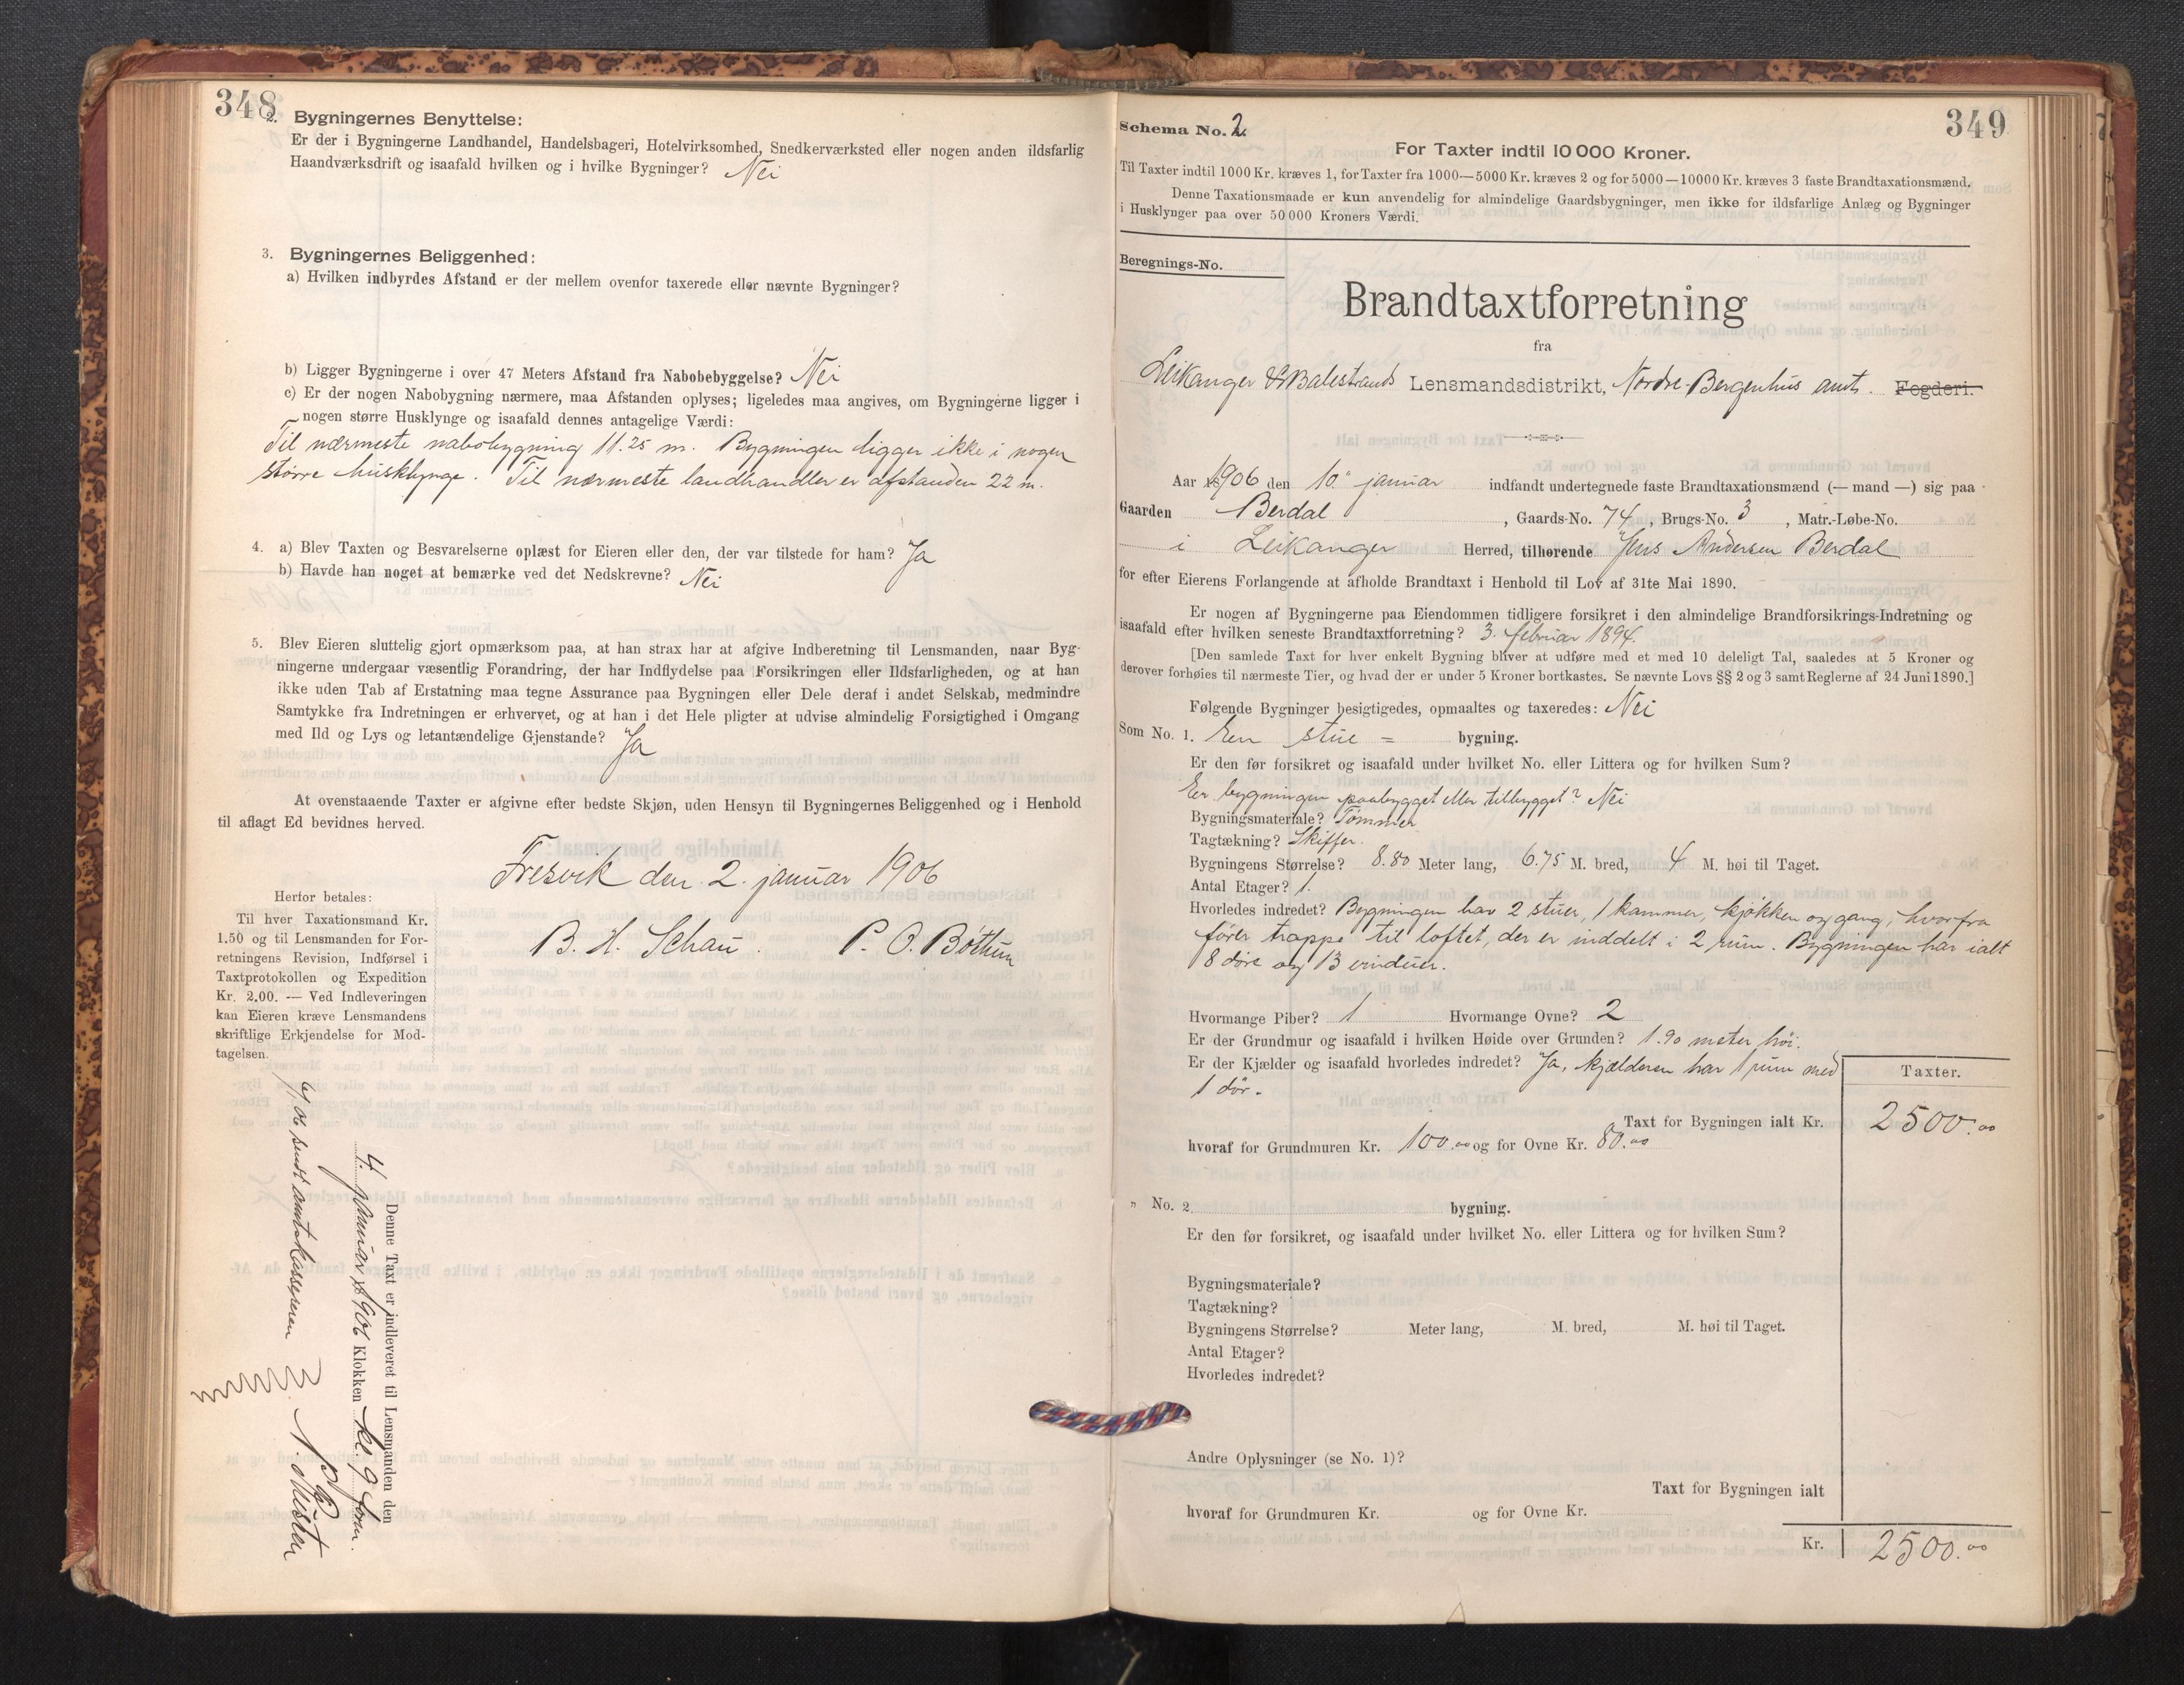 348
2. Bygningernes Benyttelse:
Er der i Bygningerne Landhandel, Handelsbageri, Hotelvirksomhed, Snedkerværksted eller nogen anden ildsfarlig
Haandværksdrift og isaafald hvilken og i hvilke Bygninger? Nei
3. Bygningernes Beliggenhed:
a) Hvilken indbyrdes Afstand er der mellem ovenfor taxerede eller nævnte Bygninger?
b) Ligger Bygningerne i over 47 Meters Afstand fra Nabobebyggelse? Nei
c) Er der nogen Nabobygning nærmere, maa Afstanden oplyses; ligeledes maa angives, om Bygningerne ligger i
nogen større Husklynge og isaafald dennes antagelige Værdi:
Til nærmeste nabobygning 11.25 m. Bygningen ligger ikke i nogen
större husklynge. Til nærmeste landhandler er afstanden 22 m.
4. a) Blev Taxten og Besvarelserne oplæst for Eieren eller den, der var tilstede for ham? Ja
b) Havde han noget at bemærke ved det Nedskrevne? Nei
5. Blev Eieren sluttelig gjort opmærksom paa, at han strax har at afgive Indberetning til Lensmanden, naar Byg-
ningerne undergaar væsentlig Forandring, der har Indflydelse paa Forsikringen eller Ildsfarligheden, og at han
ikke uden Tab af Erstatning maa tegne Assurance paa Bygningen eller Dele deraf i andet Selskab, medmindre
Samtykke fra Indretningen er erhvervet, og at han i det Hele pligter at udvise almindelig Forsigtighed i Omgang
med Ild og Lys og letantændelige Gjenstande? Ja
At ovenstaaende Taxter er afgivne efter bedste Skjøn, uden Hensyn til Bygningernes Beliggenhed og i Henhold
til aflagt Ed bevidnes herved.
Fresvik den 2. januar 1906
B. H. Schau. P. O. Böthun
Herfor betales:
Til hver Taxationsmand Kr.
1.50 og til Lensmanden for For-
retningens Revision, Indførsel i
Taxtprotokollen og Expedition
Kr. 2.00. — Ved Indleveringen
kan Eieren kræve Lensmandens
skriftlige Erkjendelse for Mod-
tagelsen.
Denne Taxt er indleveret til Lensmanden den
4. januar 1906 Klokken kl. 9 form.
sendt amtskassereren
349
Schema No. 2.
For Taxter indtil 10 000 Kroner.
Til Taxter indtil 1000 Kr. kræves 1, for Taxter fra 1000—5000 Kr. kræves 2 og for 5000—10000 Kr. kræves 3 faste Brandtaxationsmænd.
Denne Taxationsmaade er kun anvendelig for almindelige Gaardsbygninger, men ikke for ildsfarlige Anlæg og Bygninger
i Husklynger paa over 50 000 Kroners Værdi.
Beregnings-No.
Brandtaxtforretning
fra
Leikanger & Balestrands Lensmandsdistrikt, Nordre-Bergenhus amt. Fogderi.
Aar 1906 den 10 januar indfandt undertegnede faste Brandtaxationsmænd (— mand —) sig paa
Gaarden Berdal, Gaards-No. 74, Brugs-No. 3, Matr.-Løbe-No.
i Leikanger Herred, tilhørende Jens Andersen Berdal
for efter Eierens Forlangende at afholde Brandtaxt i Henhold til Lov af 31te Mai 1890.
Er nogen af Bygningerne paa Eiendommen tidligere forsikret i den almindelige Brandforsikrings-Indretning og
isaafald efter hvilken seneste Brandtaxtforretning? 3. februar 1894.
[Den samlede Taxt for hver enkelt Bygning bliver at udføre med et med 10 deleligt Tal, saaledes at 5 Kroner og
derover forhøies til nærmeste Tier, og hvad der er under 5 Kroner bortkastes. Se nævnte Lovs §§ 2 og 3 samt Reglerne af 24 Juni 1890.]
Følgende Bygninger besigtigedes, opmaaltes og taxeredes: Nei
Som No. 1. En stue = bygning.
Er den før forsikret og isaafald under hvilket No. eller Littera og for hvilken Sum?
Er bygningen paabygget eller tilbygget? Nei
Bygningsmateriale? Tömmer
Tagtækning? Skiffer.
Bygningens Størrelse? 8.80 Meter lang, 6.75 M. bred, 4 M. høi til Taget.
Antal Etager? 1.
Hvorledes indredet? Bygningen har 2 stuer, 1 kammer, kjökken og gang, hvorfra
förer trappe til loftet, der er inddelt i 2 rum. Bygningen har ialt
8 döre og 13 vinduer.
Hvormange Piber? 1 Hvormange Ovne? 2
Er der Grundmur og isaafald i hvilken Høide over Grunden? 1.90 meter höi.
Er der Kjælder og isaafald hvorledes indredet? Ja, kjælderen har 1 rum med
1 dör.
Taxter.
Taxt for Bygningen ialt Kr. 2500.00
hvoraf for Grundmuren Kr. 100.00 og for Ovne Kr. 80.00
" No. 2 bygning.
Er den før forsikret, og isaafald under hvilket No. eller Littera og for hvilken Sum?
Bygningsmateriale?
Tagtækning?
Bygningens Størrelse? Meter lang, M. bred, M. høi til Taget.
Antal Etager?
Hvorledes indredet?
Andre Oplysninger (se No. 1)?
Taxt for Bygningen ialt
hvoraf for Grundmuren Kr. og for Ovne Kr.
Kr. 2500.00